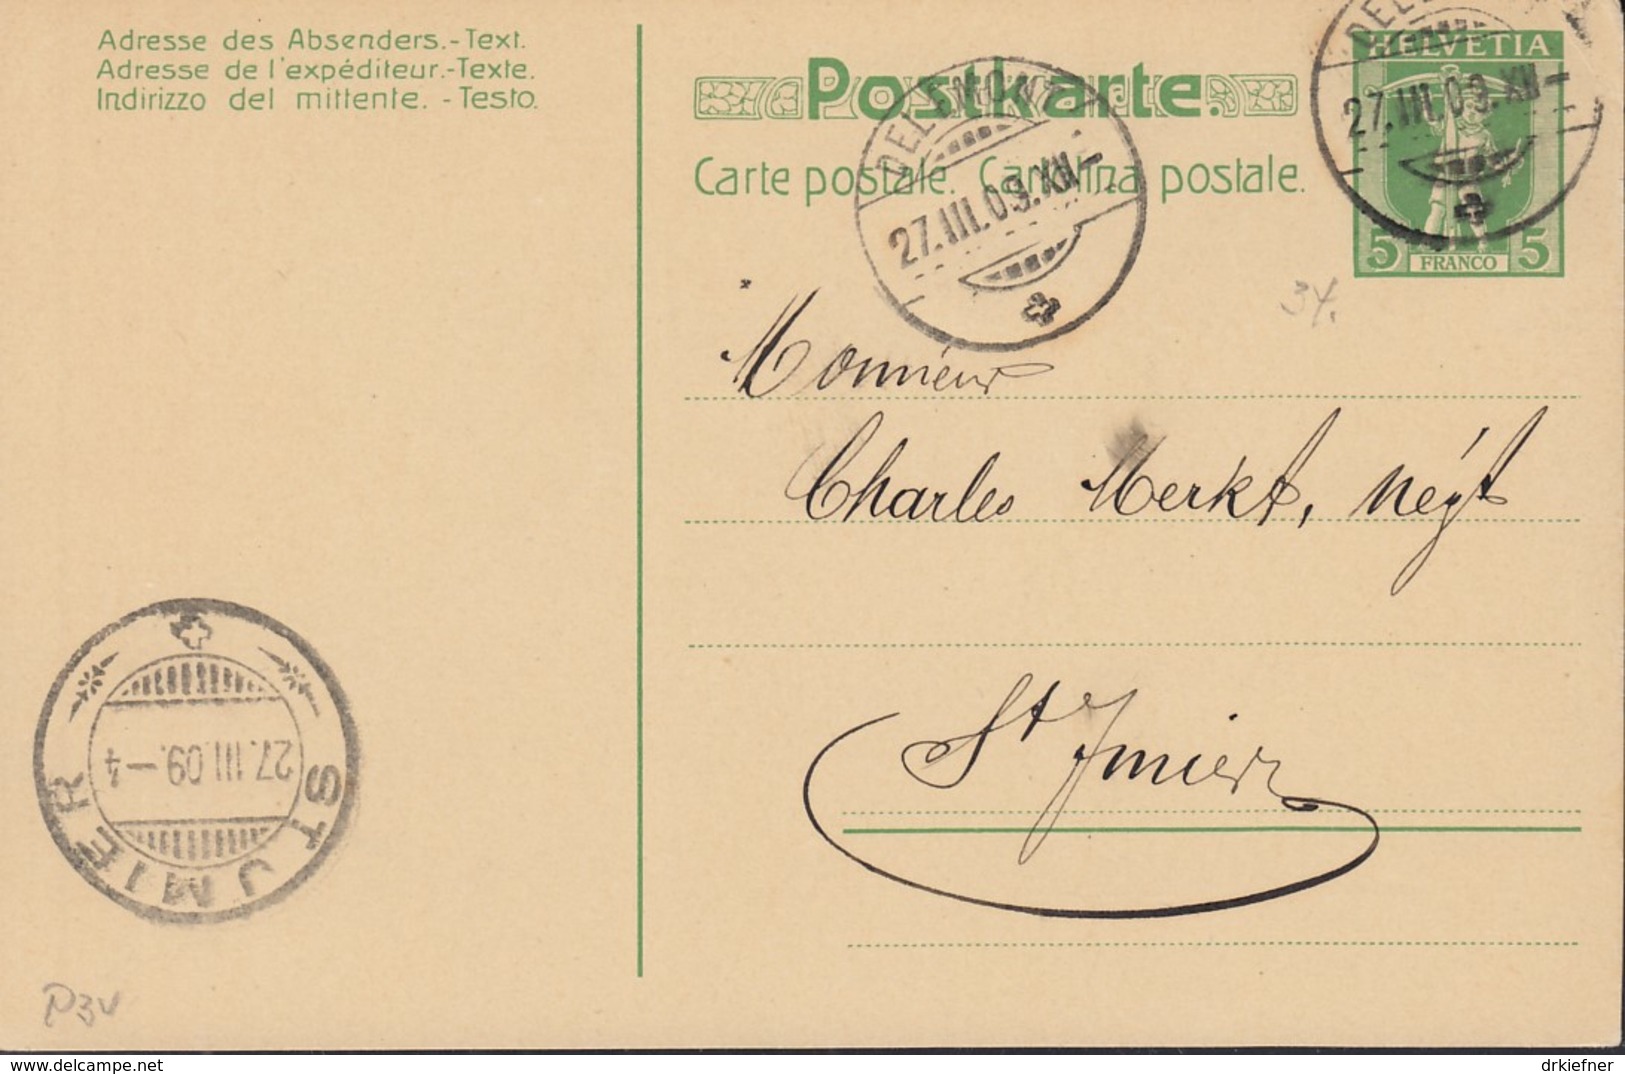 Adresse des Absenders.-Text.
Adresse de l'expéditeur.-Texte.
Indirizzo del mittente. - Testo.
Postkarte.
Carte postale. Cartolina postale.
HELVETIA
5 FRANCO 5
DELEMONT
27.III.09.XII-
27.III.09.XII-
Monsieur
Charles Merkt, négt
St Imier
ST IMIER
27.III.09.-4
drkiefner